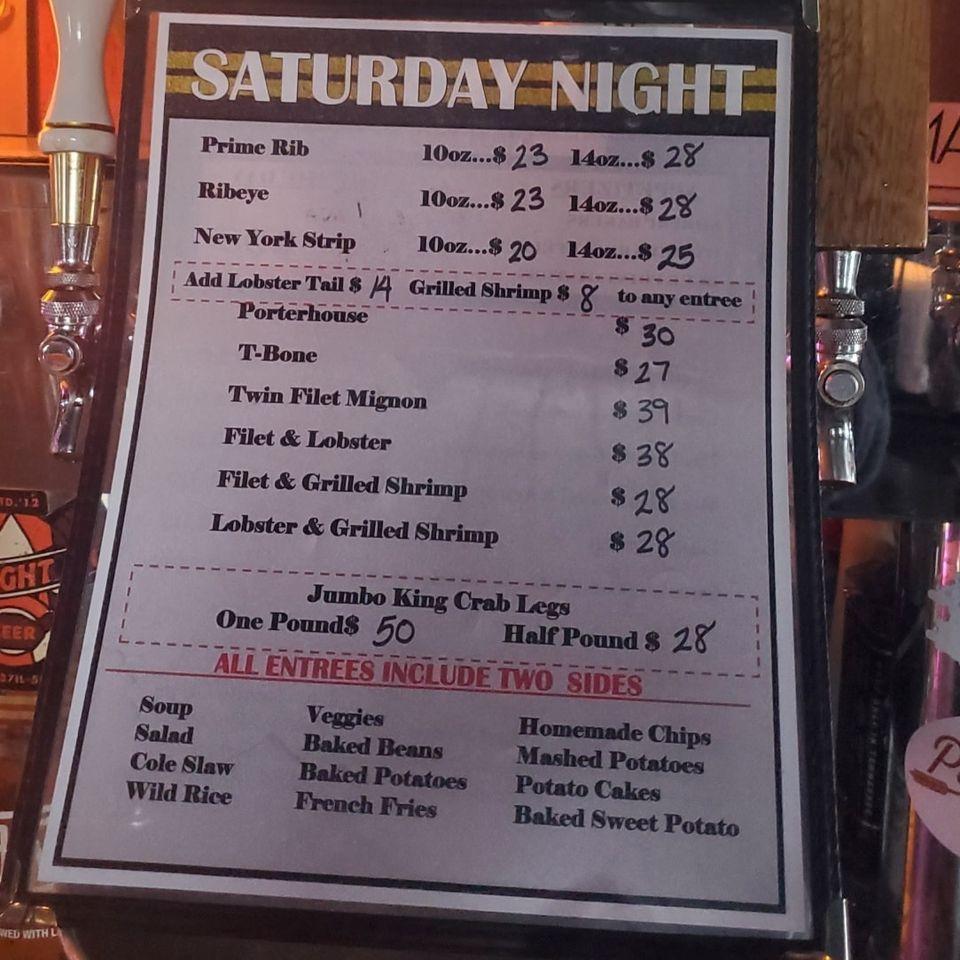 SATURDAY NIGHT
Prime Rib 10oz...$ 23 14oz...$ 28
Ribeye 10oz...$ 23 14oz...$ 28
New York Strip 10oz...$ 20 14oz...$ 25
Add Lobster Tail $ 14 Grilled Shrimp $ 8 to any entree
Porterhouse $ 30
T-Bone $ 27
Twin Filet Mignon $ 39
Filet & Lobster $ 38
Filet & Grilled Shrimp $ 28
Lobster & Grilled Shrimp $ 28
Jumbo King Crab Legs
One Pound$ 50 Half Pound $ 28
ALL ENTREES INCLUDE TWO SIDES
Soup Veggies Homemade Chips
Salad Baked Beans Mashed Potatoes
Cole Slaw Baked Potatoes Potato Cakes
Wild Rice French Fries Baked Sweet Potato